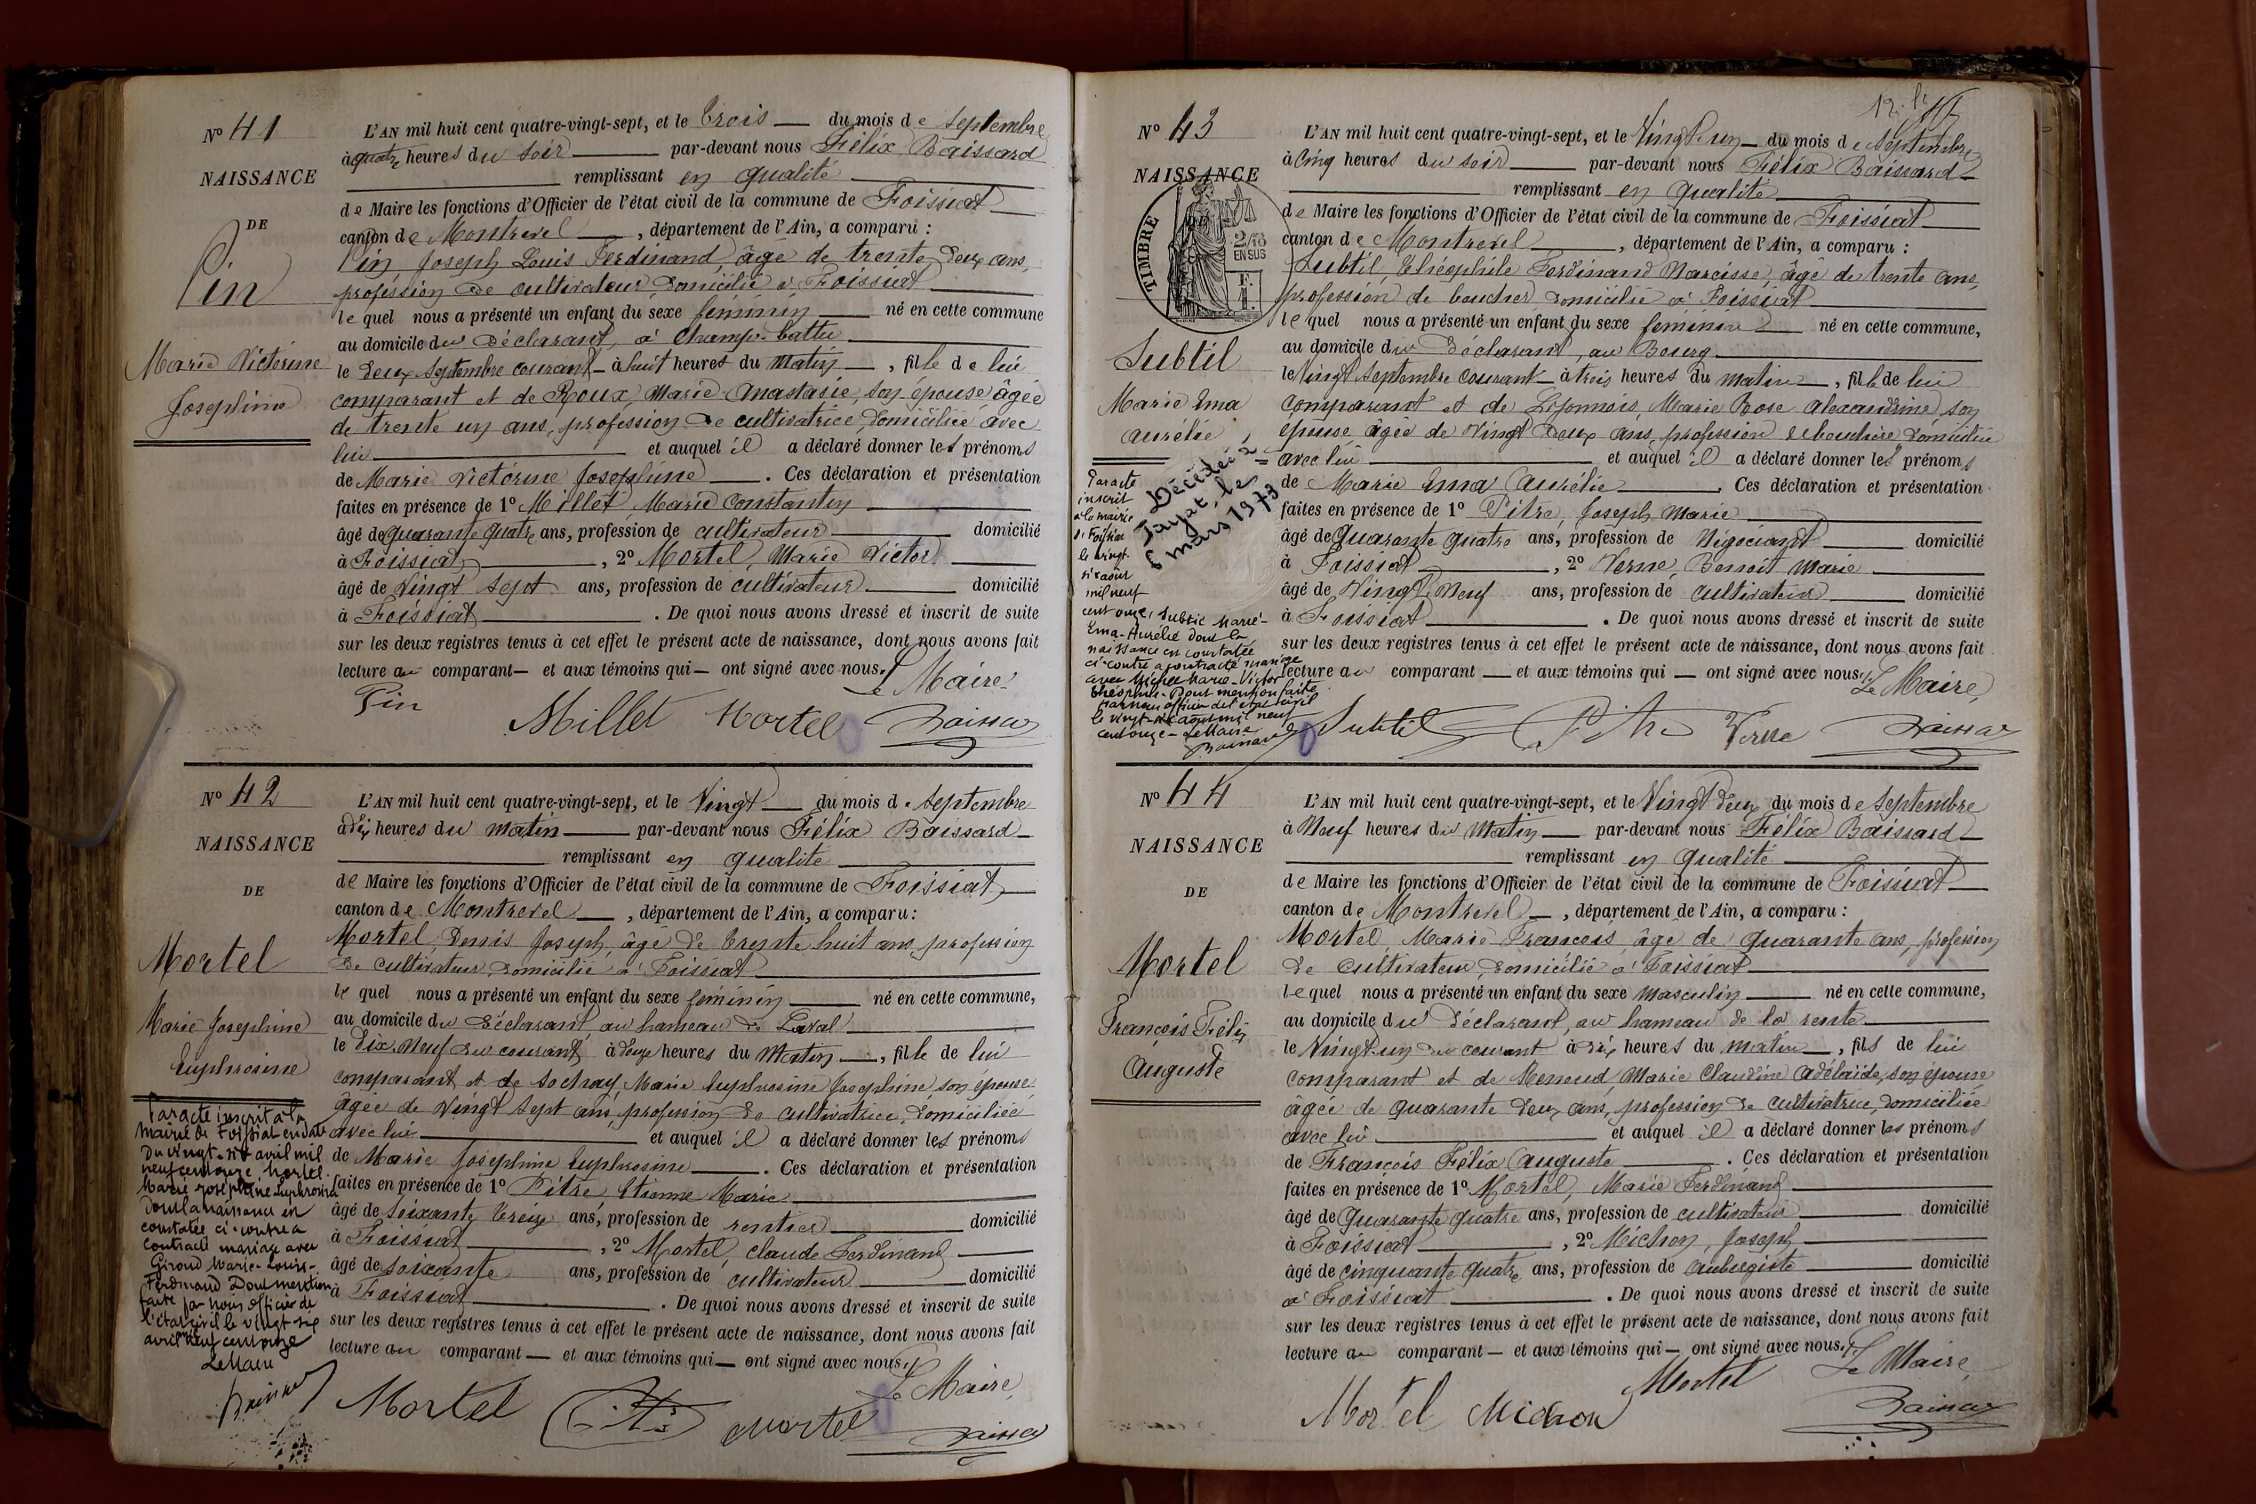 Nº 41
NAISSANCE
DE
Pin
Marie Victorine
Joséphine
L'AN mil huit cent quatre-vingt-sept, et le Trois du mois de Septembre
à quatre heures du soir par-devant nous Félix Baissard
remplissant en qualité
de Maire les fonctions d'Officier de l'état civil de la commune de Foissiat
canton de Montrevel, département de l'Ain, a comparu :
Pin Joseph Louis Ferdinand âgé de trente deux ans,
profession de cultivateur domicilié à Foissiat
le quel nous a présenté un enfant du sexe féminin né en cette commune
au domicile du Déclarant, à Champ-battu
le deux Septembre courant à huit heures du matin, fille de lui
comparant et de Roux, Marie Anastasie, son épouse âgée
de trente un ans, profession de cultivatrice, domiciliée avec
lui et auquel il a déclaré donner les prénoms
de Marie Victorine Joséphine. Ces déclaration et présentation
faites en présence de 1º Millet Marie Constantin
âgé de quarante quatre ans, profession de cultivateur domicilié
à Foissiat, 2º Mortel, Marie Victor
âgé de Vingt Sept ans, profession de cultivateur domicilié
à Foissiat. De quoi nous avons dressé et inscrit de suite
sur les deux registres tenus à cet effet le présent acte de naissance, dont nous avons fait
lecture au comparant et aux témoins qui ont signé avec nous.
Le Maire
Pin Millet Mortel Baissard
Nº 42
NAISSANCE
DE
Mortel
Marie Joséphine
Euphrosine
L'AN mil huit cent quatre-vingt-sept, et le Vingt du mois de Septembre
à dix heures du matin par-devant nous Félix Baissard
remplissant en qualité
de Maire les fonctions d'Officier de l'état civil de la commune de Foissiat
canton de Montrevel, département de l'Ain, a comparu :
Mortel, Denis Joseph, âgé de trente huit ans, profession
de cultivateur domicilié à Foissiat
le quel nous a présenté un enfant du sexe féminin né en cette commune,
au domicile du Déclarant, au hameau de Laval
le Dix Neuf du courant, à deux heures du Matin, fille de lui
comparant et de Sochay, Marie Euphrosine Joséphine son épouse
âgée de Vingt Sept ans, profession de cultivatrice, domiciliée
avec lui et auquel il a déclaré donner les prénoms
de Marie Joséphine Euphrosine. Ces déclaration et présentation
faites en présence de 1º Pitre, Etienne Marie
âgé de Soixante treize ans, profession de rentier domicilié
à Foissiat, 2º Mortel, Claude Ferdinand
âgé de Soixante ans, profession de cultivateur domicilié
à Foissiat. De quoi nous avons dressé et inscrit de suite
sur les deux registres tenus à cet effet le présent acte de naissance, dont nous avons fait
lecture au comparant et aux témoins qui ont signé avec nous.
Le Maire
Mortel Pitre Mortel Baissard
Par acte inscrit à la
mairie de Foissiat en date
du vingt-six avril mil
neuf cent onze Mortel
Marie Joséphine Euphrosine
dont la naissance est
constatée ci-contre a
contracté mariage avec
Giroud Marie-Louis-
Ferdinand Dont mention
faite par nous officier de
l'état civil le vingt six
avril mil neuf cent onze
Le Maire
Baissard
12.
Nº 43
NAISSANCE
TIMBRE
2/10
EN SUS
Subtil
Marie Ema
Aurélie
L'AN mil huit cent quatre-vingt-sept, et le Vingt un du mois de Septembre
à Cinq heures du soir par-devant nous Félix Baissard
remplissant en qualité
de Maire les fonctions d'Officier de l'état civil de la commune de Foissiat
canton de Montrevel, département de l'Ain, a comparu :
Subtil, Théophile Ferdinand Narcisse, âgé de trente ans,
profession de boucher domicilié à Foissiat
le quel nous a présenté un enfant du sexe féminin né en cette commune,
au domicile du Déclarant, au Bourg
le Vingt Septembre courant à trois heures du matin, fille de lui
comparant et de Lyonnois, Marie Rose Alexandrine son
épouse âgée de Vingt Deux ans, profession de bouchère domiciliée
avec lui et auquel il a déclaré donner les prénoms
de Marie Ema Aurélie. Ces déclaration et présentation
faites en présence de 1º Pitre, Joseph Marie
âgé de Quarante quatre ans, profession de Négociant domicilié
à Foissiat, 2º Verne, Benoît Marie
âgé de Vingt Neuf ans, profession de cultivateur domicilié
à Foissiat. De quoi nous avons dressé et inscrit de suite
sur les deux registres tenus à cet effet le présent acte de naissance, dont nous avons fait
lecture au comparant et aux témoins qui ont signé avec nous.
Le Maire,
Subtil Pitre Verne Baissard
Décédée à
Jayat, le
6 mars 1973
Par acte
inscrit
à la mairie
de Foissiat
le vingt-
six août
mil neuf
cent onze, Subtil Marie-
Ema-Aurélie dont la
naissance est constatée
ci-contre a contracté mariage
avec Michel Marie-Victor
Théophile. Dont mention faite
par nous officier de l'état civil
le vingt-six août mil neuf
cent onze - Le Maire
Baissard
Nº 44
NAISSANCE
DE
Mortel
François Félix
Auguste
L'AN mil huit cent quatre-vingt-sept, et le Vingt Deux du mois de Septembre
à Neuf heures du Matin par-devant nous Félix Baissard
remplissant en qualité
de Maire les fonctions d'Officier de l'état civil de la commune de Foissiat
canton de Montrevel, département de l'Ain, a comparu :
Mortel, Marie François âgé de quarante ans, profession
de cultivateur, domicilié à Foissiat
le quel nous a présenté un enfant du sexe masculin né en cette commune,
au domicile du Déclarant, au hameau de la rente
le Vingt un du courant à dix heures du matin, fils de lui
comparant et de Renoud Marie Claudine Adélaïde, son épouse
âgée de quarante deux ans, profession de cultivatrice, domiciliée
avec lui et auquel il a déclaré donner les prénoms
de François Félix Auguste. Ces déclaration et présentation
faites en présence de 1º Mortel, Marie Ferdinand
âgé de Quarante quatre ans, profession de cultivateur domicilié
à Foissiat, 2º Michon, Joseph
âgé de cinquante quatre ans, profession de aubergiste domicilié
à Foissiat. De quoi nous avons dressé et inscrit de suite
sur les deux registres tenus à cet effet le présent acte de naissance, dont nous avons fait
lecture au comparant et aux témoins qui ont signé avec nous.
Le Maire
Mortel Michon Mortel Baissard